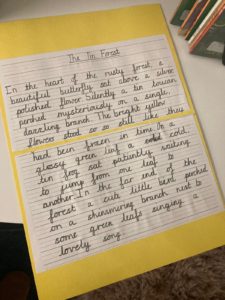 The Tin Forest
In the heart of the rusty forest, a
beautiful butterfly sat above a silver
polished flower. Silently a tin toucan
perched mysteriously on a single,
dazzling branch. The bright yellow
flowers stood so so still like they
had been frozen in time. On a
glossy green leaf a cold,
tin frog sat patiently waiting
to jump from one leaf to the
another. In the far end of the
forest a cute little bird perched
on a shimmering branch next to
some green leafs singing a
lovely song.